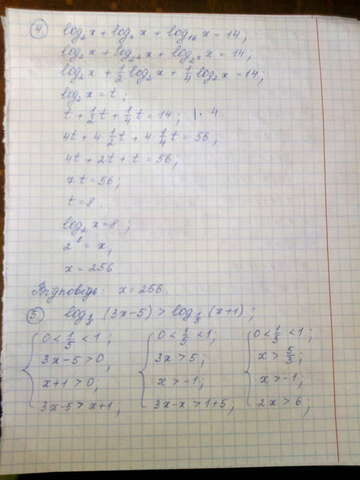 ④ log₂x + log₄x + log₁₆x = 14,
log₂x + log₂²x + log₂⁴x = 14,
log₂x + 1/2 log₂x + 1/4 log₂x = 14;
log₂x = t;
t + 1/2 t + 1/4 t = 14; | · 4
4t + 4 1/2 t + 4 1/4 t = 56;
4t + 2t + t = 56;
7t = 56;
t = 8.
log₂x = 8;
2⁸ = x,
x = 256
Відповідь: x = 256.
⑤ log 1/3 (3x-5) > log 1/3 (x+1);
{ 0 < 1/3 < 1; { 0 < 1/3 < 1; { 0 < 1/3 < 1;
3x-5 > 0, 3x > 5; x > 5/3;
x+1 > 0, x > -1; x > -1;
3x-5 > x+1, 3x-x > 1+5; 2x > 6;